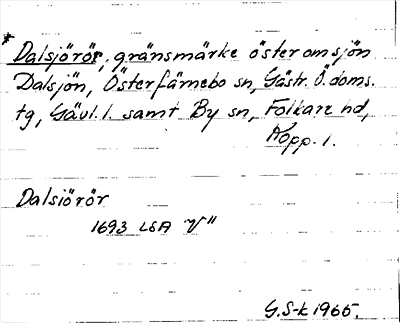 Dalsjörör, gränsmärke öster om sjön
Dalsjön, Österfärnebo sn, Gästr. Ö. doms.
tg, Gävl. l. samt By sn, Folkare hd,
Kopp. l.
Dalsiörör
1693 LSA V"
G. S-k 1965.